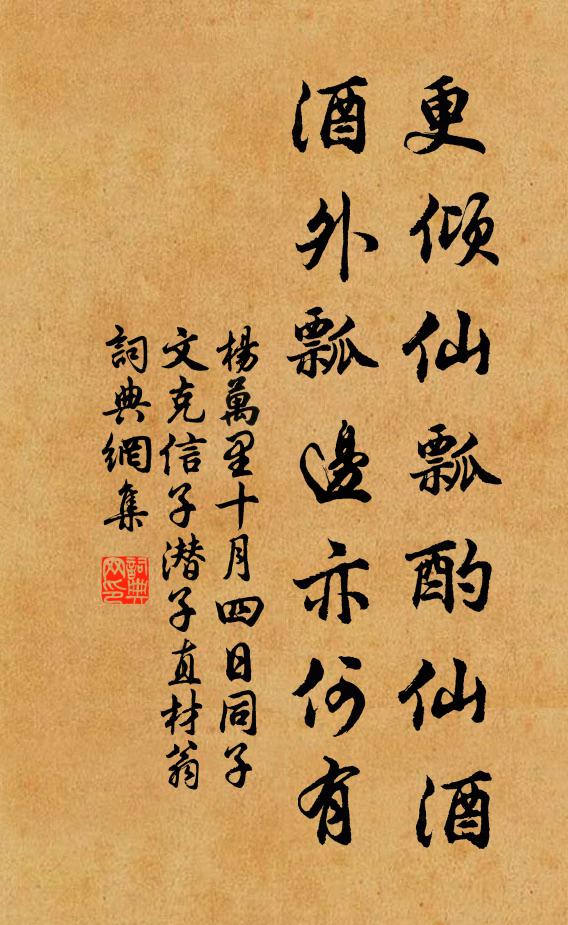 更傾仙瓢酌仙酒
酒外瓢邊亦何有
楊萬里十月四日同子
文克信子潜子直材翁
詞典網集
詞典网印